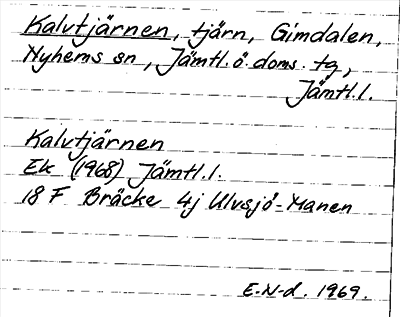 Kalvtjärnen, tjärn, Gimdalen,
Nyhems sn, Jämtl.ö.doms.tg,
Jämtl.l.
Kalvtjärnen
Ek (1968) Jämtl.l.
18 F Bräcke 4j Ulvsjö-Manen
E.N-d. 1969.